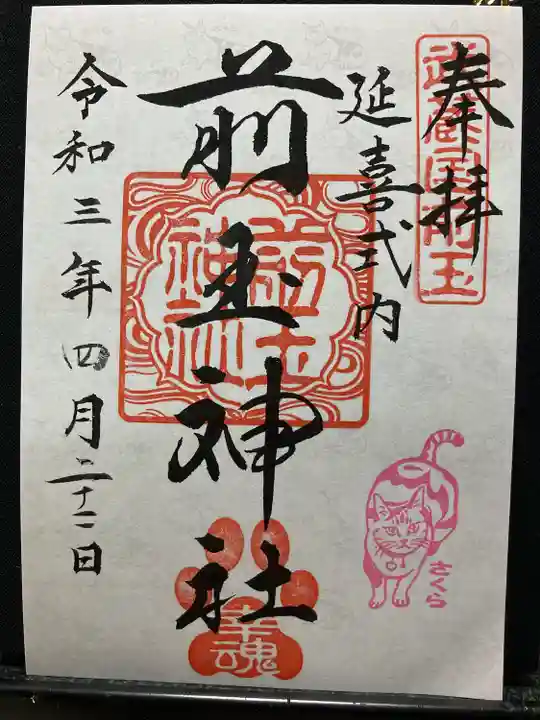 奉拝
武蔵国前玉
延喜式内
前玉神社
前玉
神社
令和三年四月二十二日
さくら
幸魂